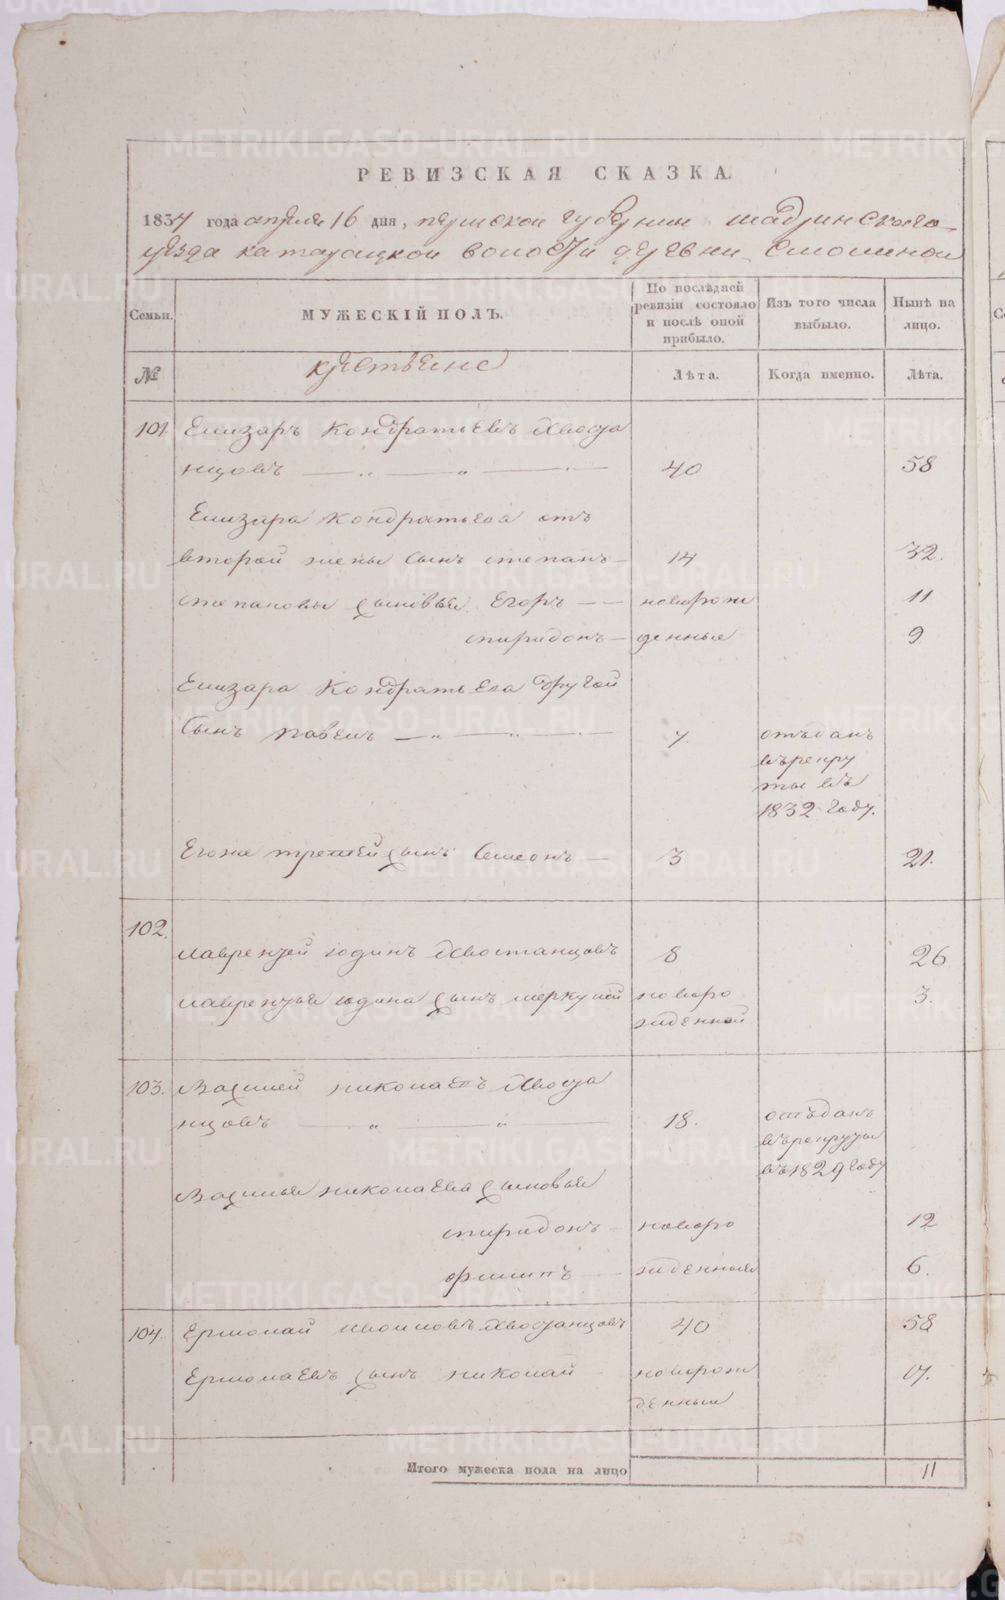 РЕВИЗСКАЯ СКАЗКА.
1834 года апреля 16 дня, пермской губернии шадринскаго
уезда катайской волости деревни Смолиной
Семьи.
МУЖЕСКІЙ ПОЛЪ.
По послѣдней ревизіи состояло и послѣ оной прибыло.
Изъ того числа выбыло.
Нынѣ на лицо.
№
крестьяне
Лѣта.
Когда именно.
Лѣта.
101. Елизаръ Кондратьевъ Хвоста
нцовъ — „ — „ — 40 58
Елизара Кондратьева отъ
второй жены сынъ степанъ — 14 32.
степановы сыновья Егоръ — — новорож 11
спиридонъ — денные 9
Елизара Кондратьева другой
Сынъ павелъ — „ — „ — 7. отъданъ
въ рекру
ты въ
1832 году.
Егоже третей сынъ Семенъ — 3 21.
102.
лаврентей юдинъ Хвостанцовъ 8 26
лаврентья юдина сынъ меркулей новоро 3.
жденной
103. Василей николаевъ Хвоста
нцовъ — „ — „ — 18. отъданъ
въ рекруты
въ 1829 году
Василья николаева сыновья
спиридонъ — новоро 12
филипъ — жденныя 6.
104. Ермолай Хвостанцовъ 40 58
Ермолаевъ сынъ николай новорож 17.
денный
Итого мужеска пола на лицо 11
METRIKI.GASO-URAL.RU